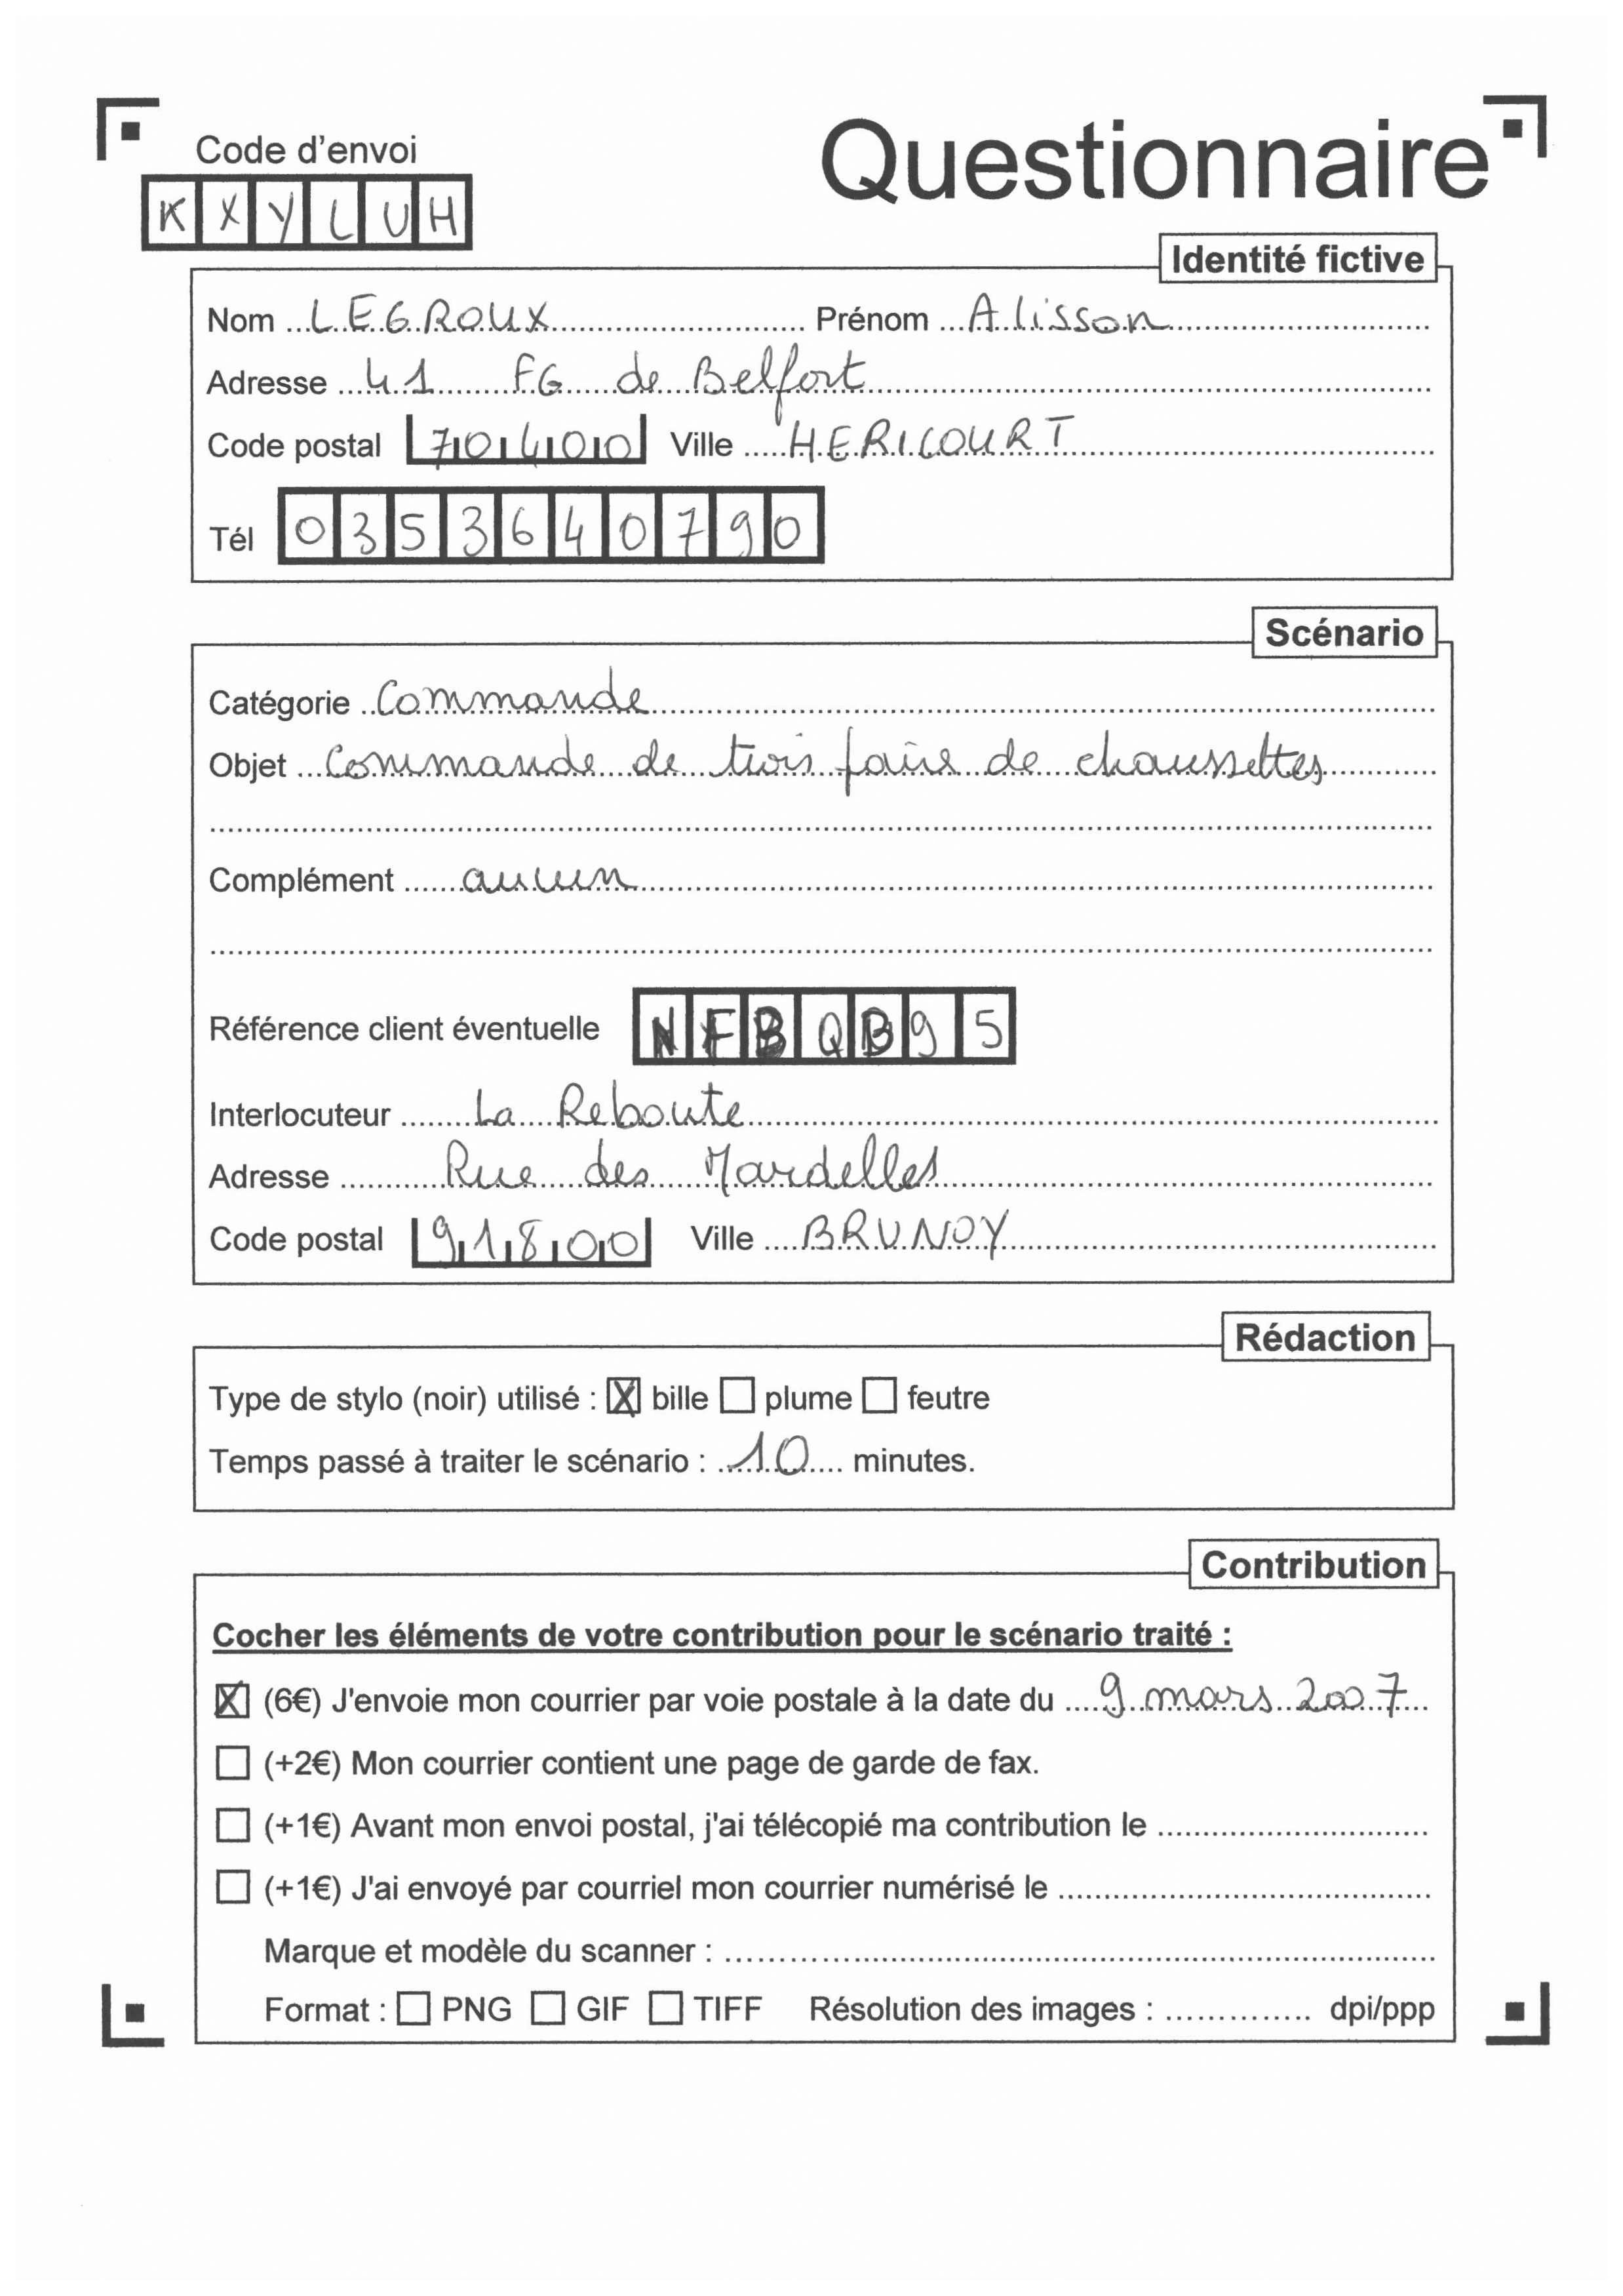 Code d'envoi
Questionnaire
KXYLUH
Identité fictive
Nom LEGROUX Prénom Alisson
Adresse 41 FG de Belfort
Code postal 70400 Ville HERICOURT
Tél 0353640790
Scénario
Catégorie Commande
Objet Commande de trois paire de chaussettes
Complément aucun
Référence client éventuelle NFBQB95
Interlocuteur La Reboute
Adresse Rue des Mardelles
Code postal 91800 Ville BRUNOY
Rédaction
Type de stylo (noir) utilisé : ☒ bille ☐ plume ☐ feutre
Temps passé à traiter le scénario : 10 minutes.
Contribution
Cocher les éléments de votre contribution pour le scénario traité :
☒ (6€) J'envoie mon courrier par voie postale à la date du 9 mars 2007
☐ (+2€) Mon courrier contient une page de garde de fax.
☐ (+1€) Avant mon envoi postal, j'ai télécopié ma contribution le
☐ (+1€) J'ai envoyé par courriel mon courrier numérisé le
Marque et modèle du scanner :
Format : ☐ PNG ☐ GIF ☐ TIFF Résolution des images : dpi/ppp